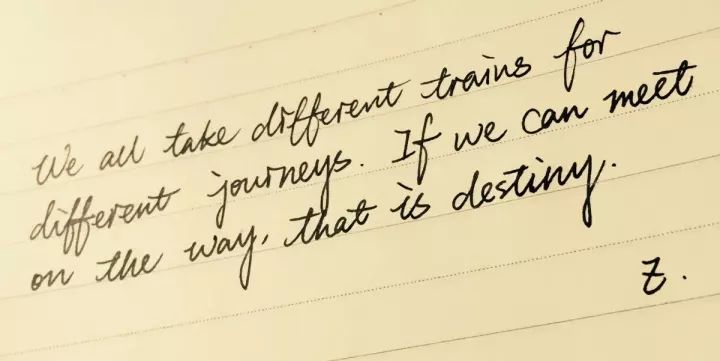 We all take different trains for
different journeys. If we can meet
on the way, that is destiny.
Z.